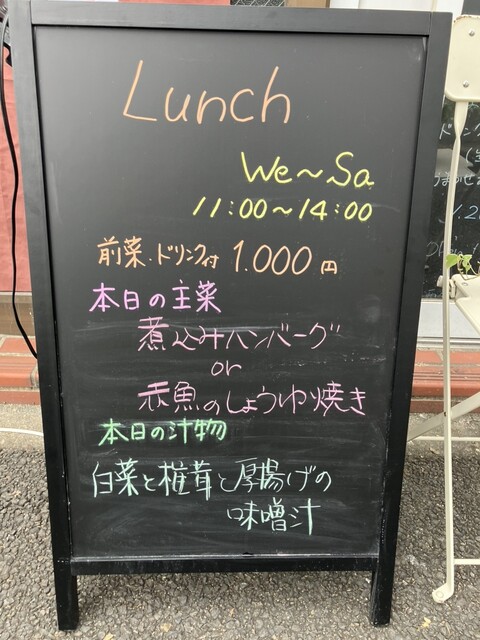 Lunch
We～Sa
11:00～14:00
前菜・ドリンク付 1.000円
本日の主菜
煮込みハンバーグ
or
赤魚のしょうゆ焼き
本日の汁物
白菜と椎茸と厚揚げの
味噌汁